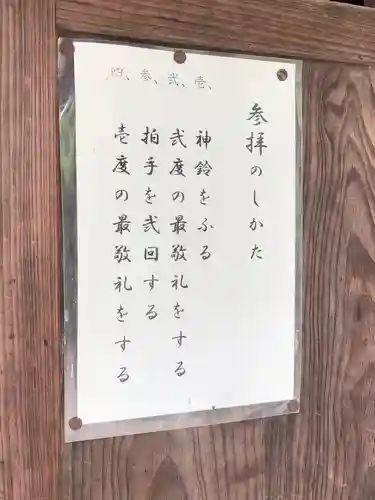 参拝のしかた
壱、神鈴をふる
弐、弐度の最敬礼をする
参、拍手を弐回する
四、壱度の最敬礼をする